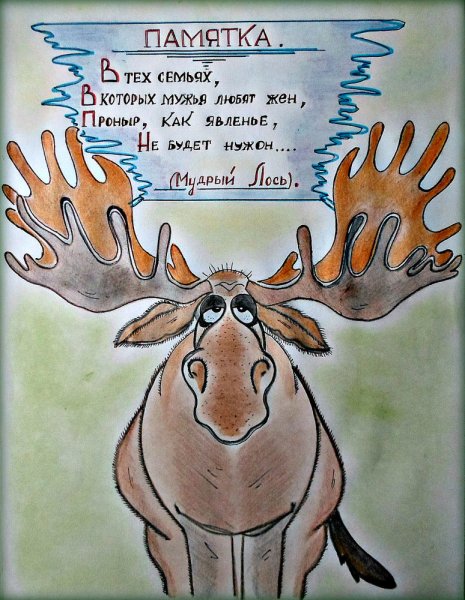 ПАМЯТКА.
В ТЕХ СЕМЬЯХ,
В КОТОРЫХ МУЖЬЯ ЛЮБЯТ ЖЕН,
ПРОНЫР, КАК ЯВЛЕНЬЕ,
НЕ БУДЕТ НУЖОН....
(МУДРЫЙ ЛОСЬ).